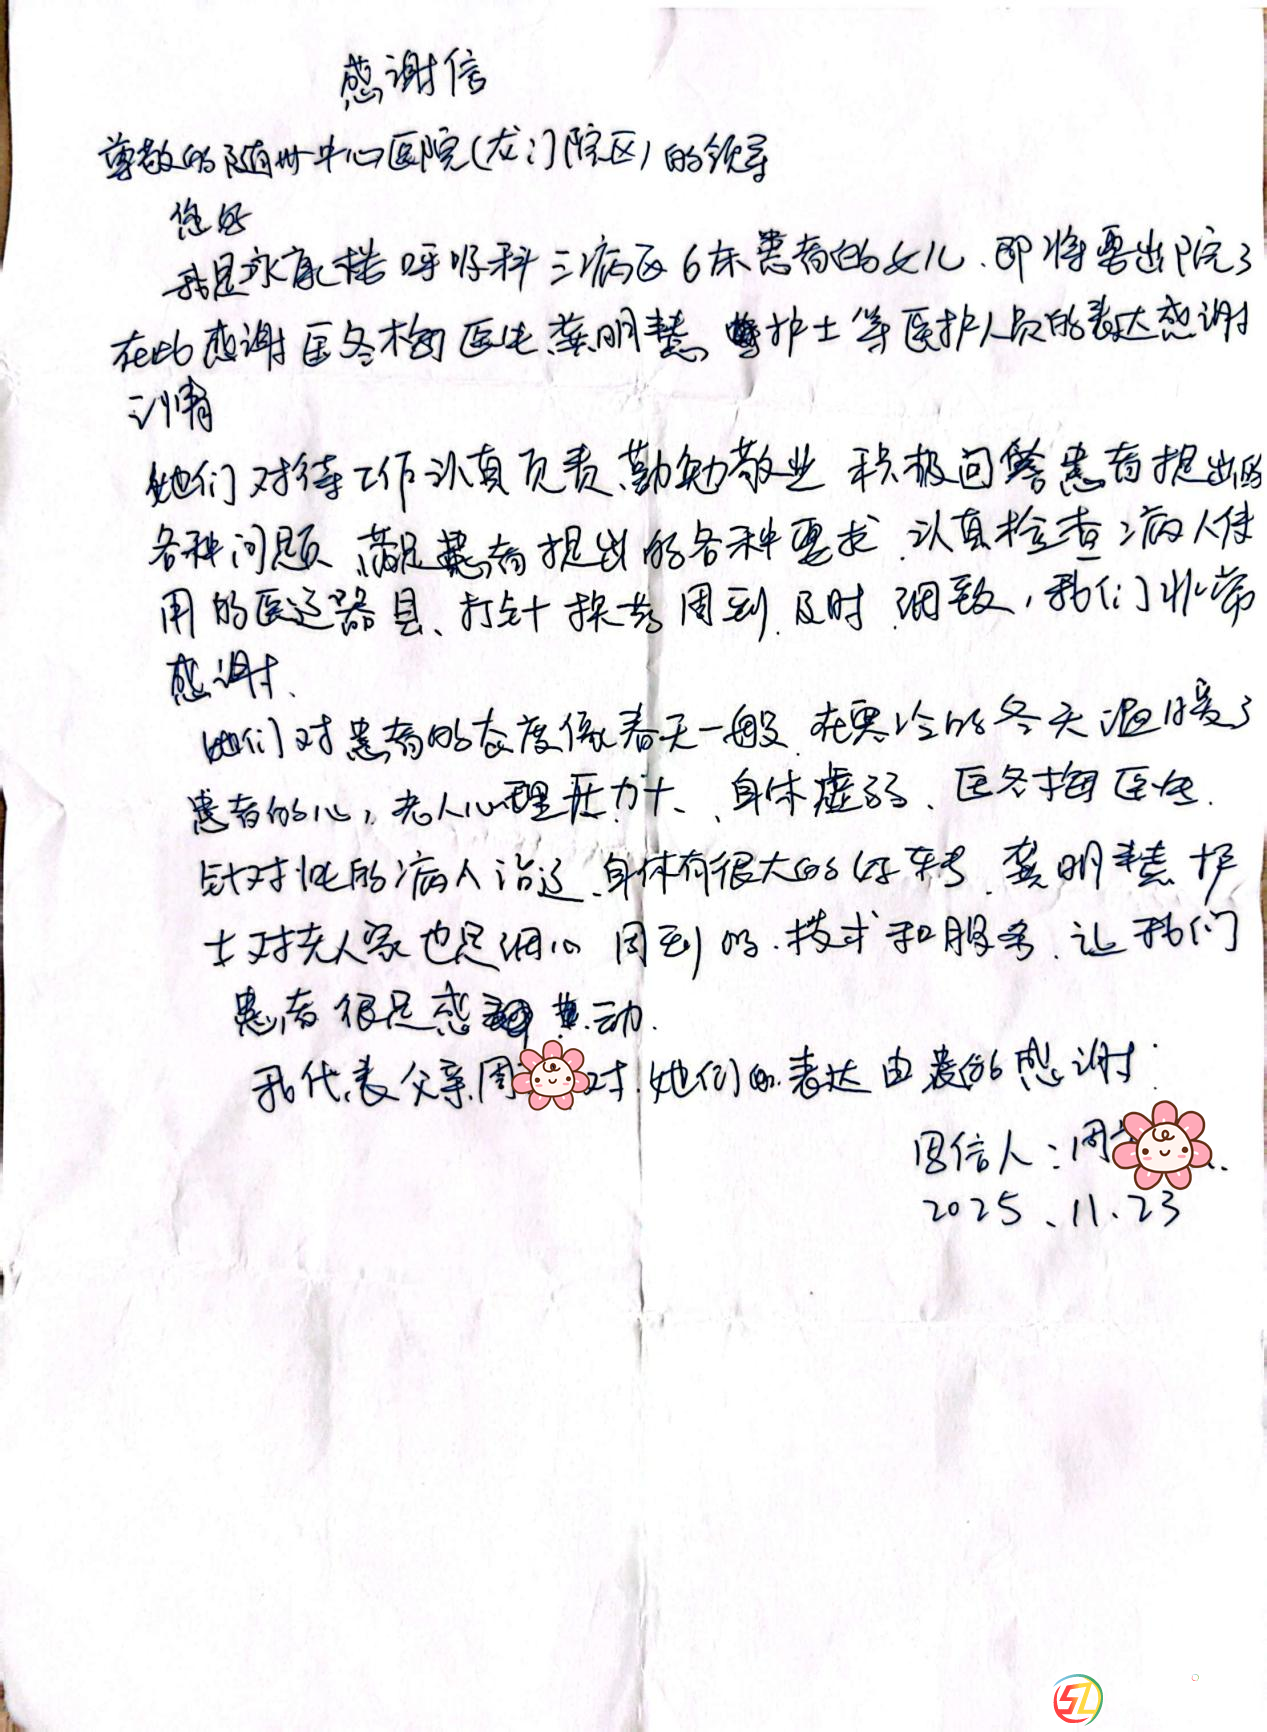 感谢信
尊敬的随州中心医院(龙门院区)的领导
您好
我是永康楼呼吸科三病区6床患者的女儿、即将要出院了
在此感谢匡冬梅医生龚明慧 护士等医护人员的表达感谢
之情
她们对待工作认真负责、勤勉敬业 积极回答患者提出的
各种问题、满足患者提出的各种要求、认真检查病人使
用的医疗器具、打针换药周到、及时、细致,我们非常
感谢、
她们对患者的态度像春天一般、在寒冷的冬天温暖了
患者的心,老人心理压力大、身体虚弱、匡冬梅医生、
针对性的病人治疗、身体有很大的好转、龚明慧护
士对老人家也是细心 周到的、技术和服务、让我们
患者很是感 动、
我代表父亲周 对她们的表达由衷的感谢:
写信人:周
2025、11、23
SZ